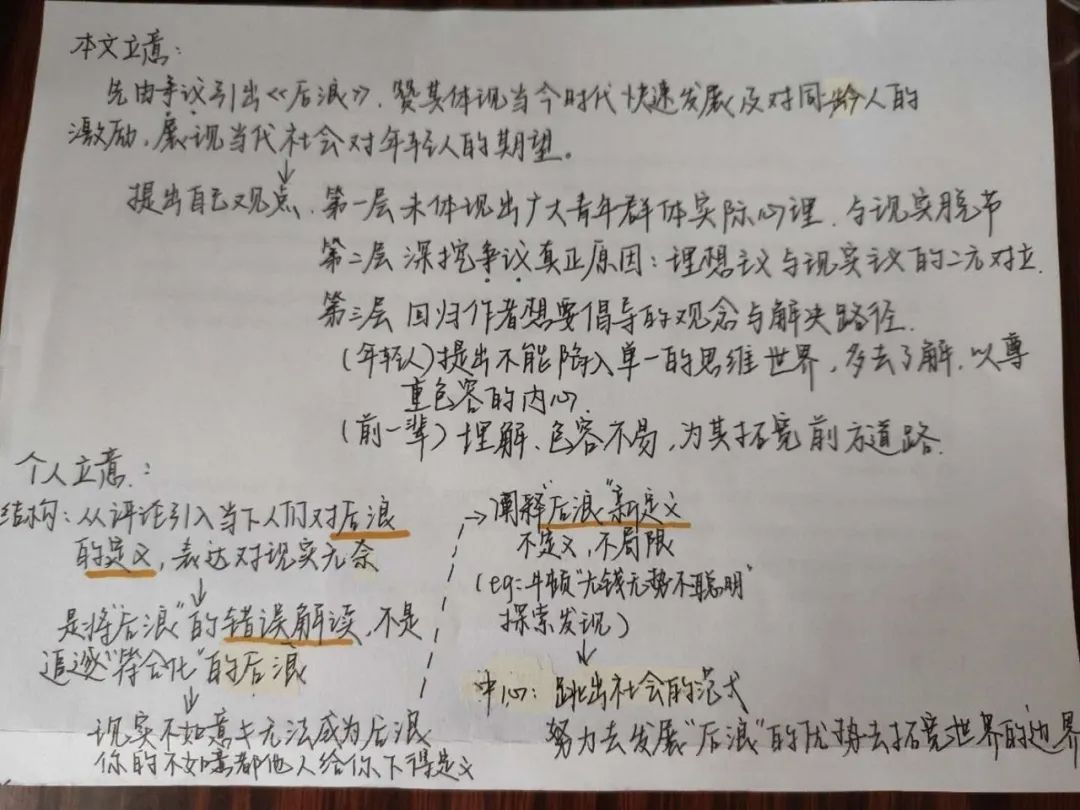 本文立意：
先由争议引出《后浪》，赞其体现当今时代快速发展及对同龄人的
激励，展现当代社会对年轻人的期望。
↓
提出自己观点．第一层 未体现出广大青年群体实际心理．与现实脱节
第二层 深挖争议真正原因：理想主义与现实议的二元对立．
第三层 回归作者想要倡导的观念与解决路径．
（年轻人）提出不能陷入单一的思维世界，多去了解．以尊
重包容的内心．
（前一辈）理解、包容不易，为其拓宽前方道路．
个人立意．：
结构：从评论引入当下人们对后浪
的定义，表达对现实无奈
↓
是将"后浪"的错误解读，不是
追逐"符合化"的后浪
↓
现实不如意≠无法成为后浪
你的不如意都他人给你下得定义
→阐释"后浪"新定义
不定义，不局限
（eg：牛顿"无钱无势不聪明"
探索发现）
↓
中心：跳出社会的范式
努力去发展"后浪"的优势去拓宽世界的边界